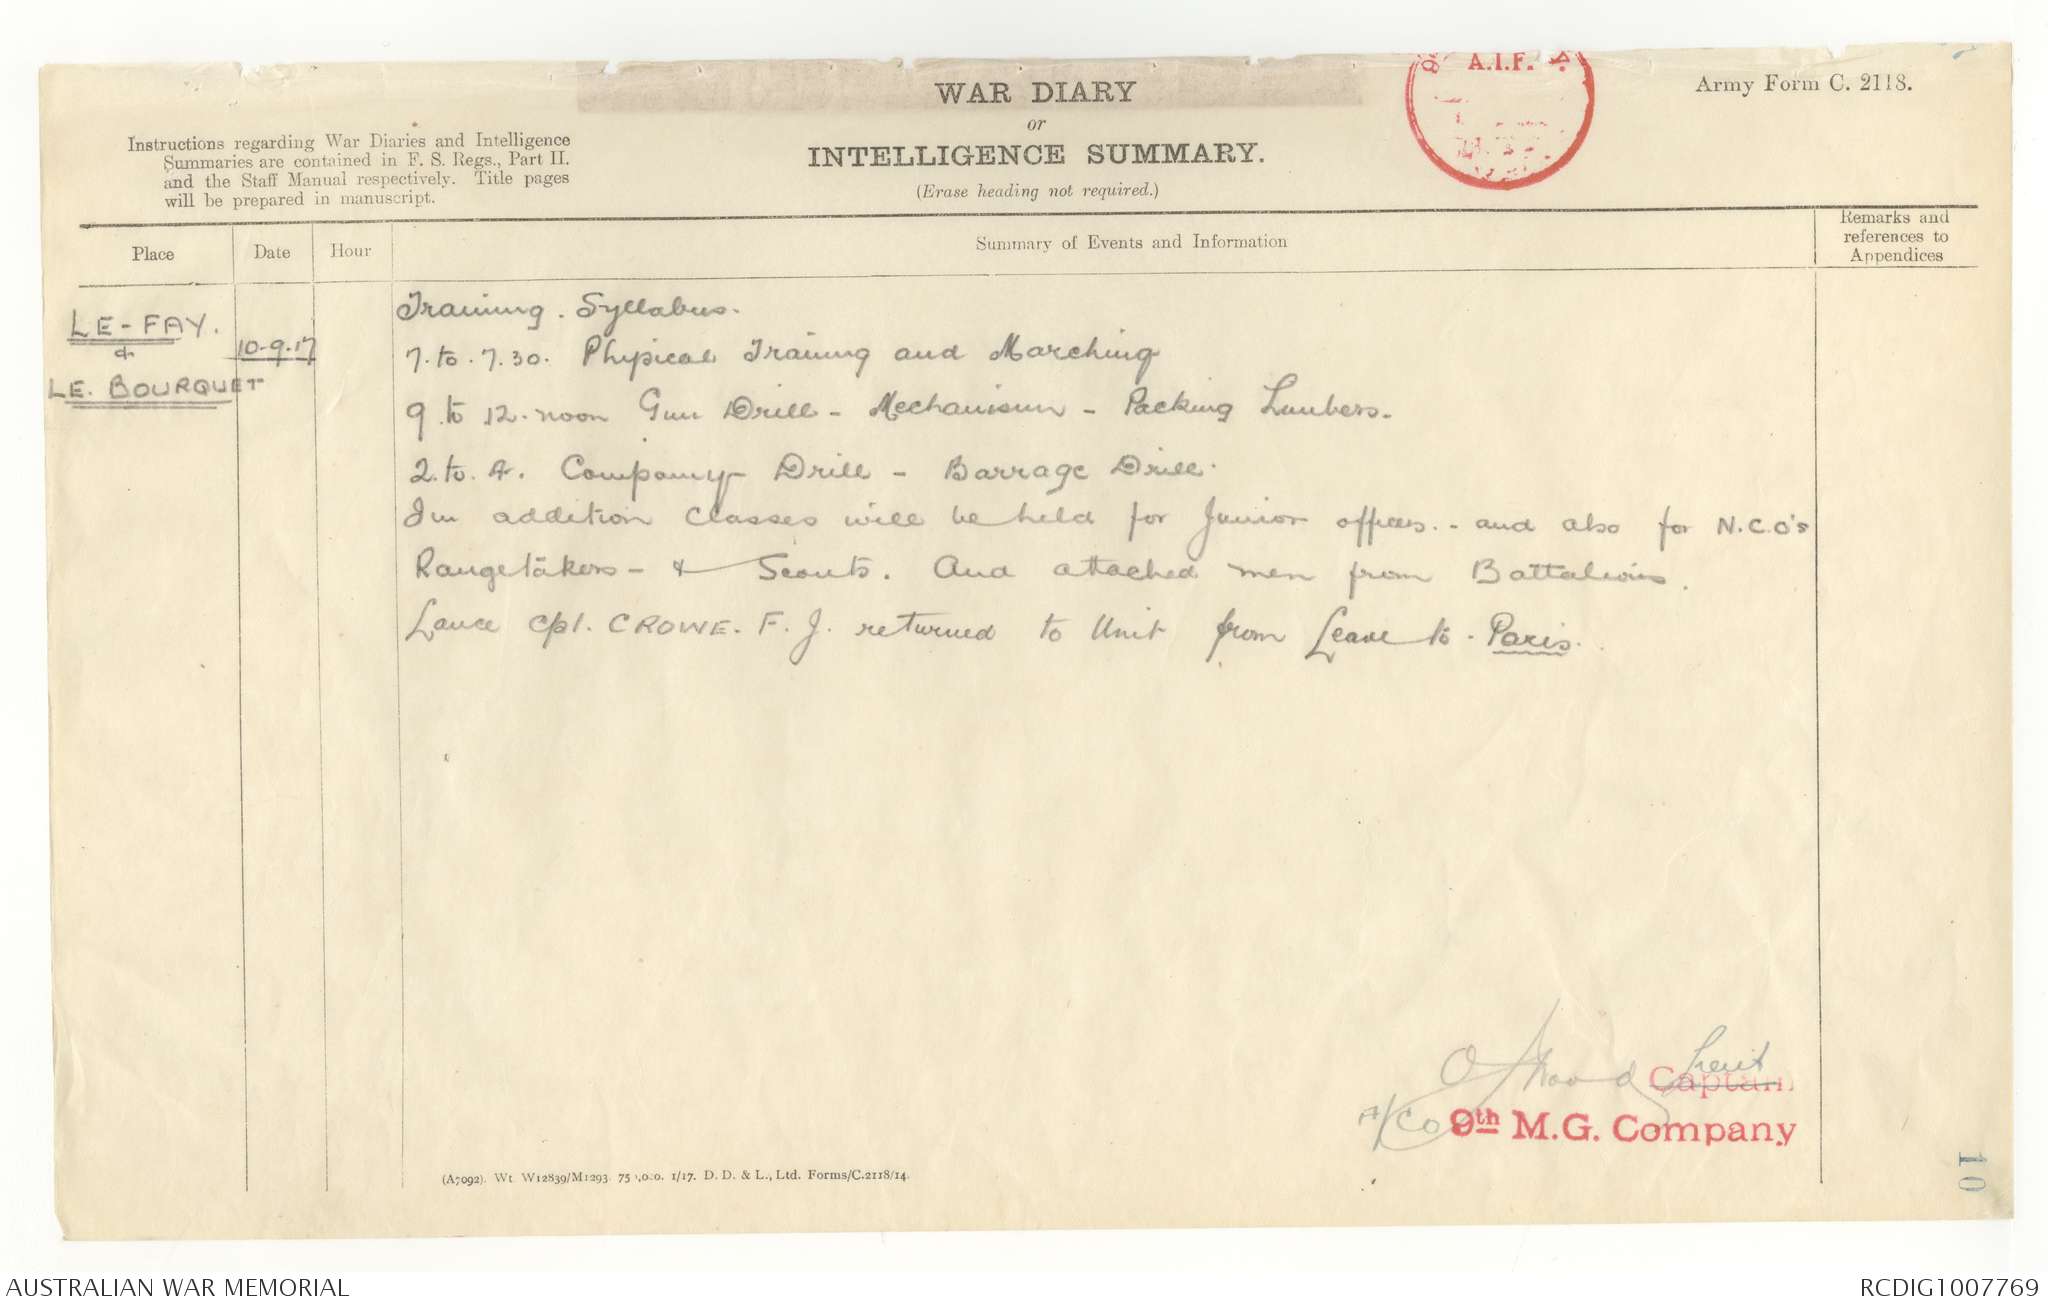 WAR DIARY
or
INTELLIGENCE SUMMARY.
(Erase heading not required.)
Army Form C. 2118.
A.I.F.
Instructions regarding War Diaries and Intelligence
Summaries are contained in F. S. Regs., Part II.
and the Staff Manual respectively. Title pages
will be prepared in manuscript.
Place
Date
Hour
Summary of Events and Information
Remarks and
references to
Appendices
LE-FAY.
&
LE. BOURQUET
10-9-17
Training. Syllabus.
7.to.7.30. Physical Training and Marching
9.to 12.noon Gun Drill - Mechanism - Packing Limbers.
2.to.4. Company Drill - Barrage Drill.
In addition classes will be held for Junior officers. - and also for N.C.O's
Rangetakers - & Scouts. And attached men from Battalions.
Lance Cpl. CROWE. F. J. returned to Unit from Leave to. Paris.
Lieut
Captain
A/CO 9th M.G. Company
(A7092). Wt. W12839/M1293. 75 ,0.0. 1/17. D. D. & L., Ltd. Forms/C.2118/14.
10
AUSTRALIAN WAR MEMORIAL
RCDIG1007769